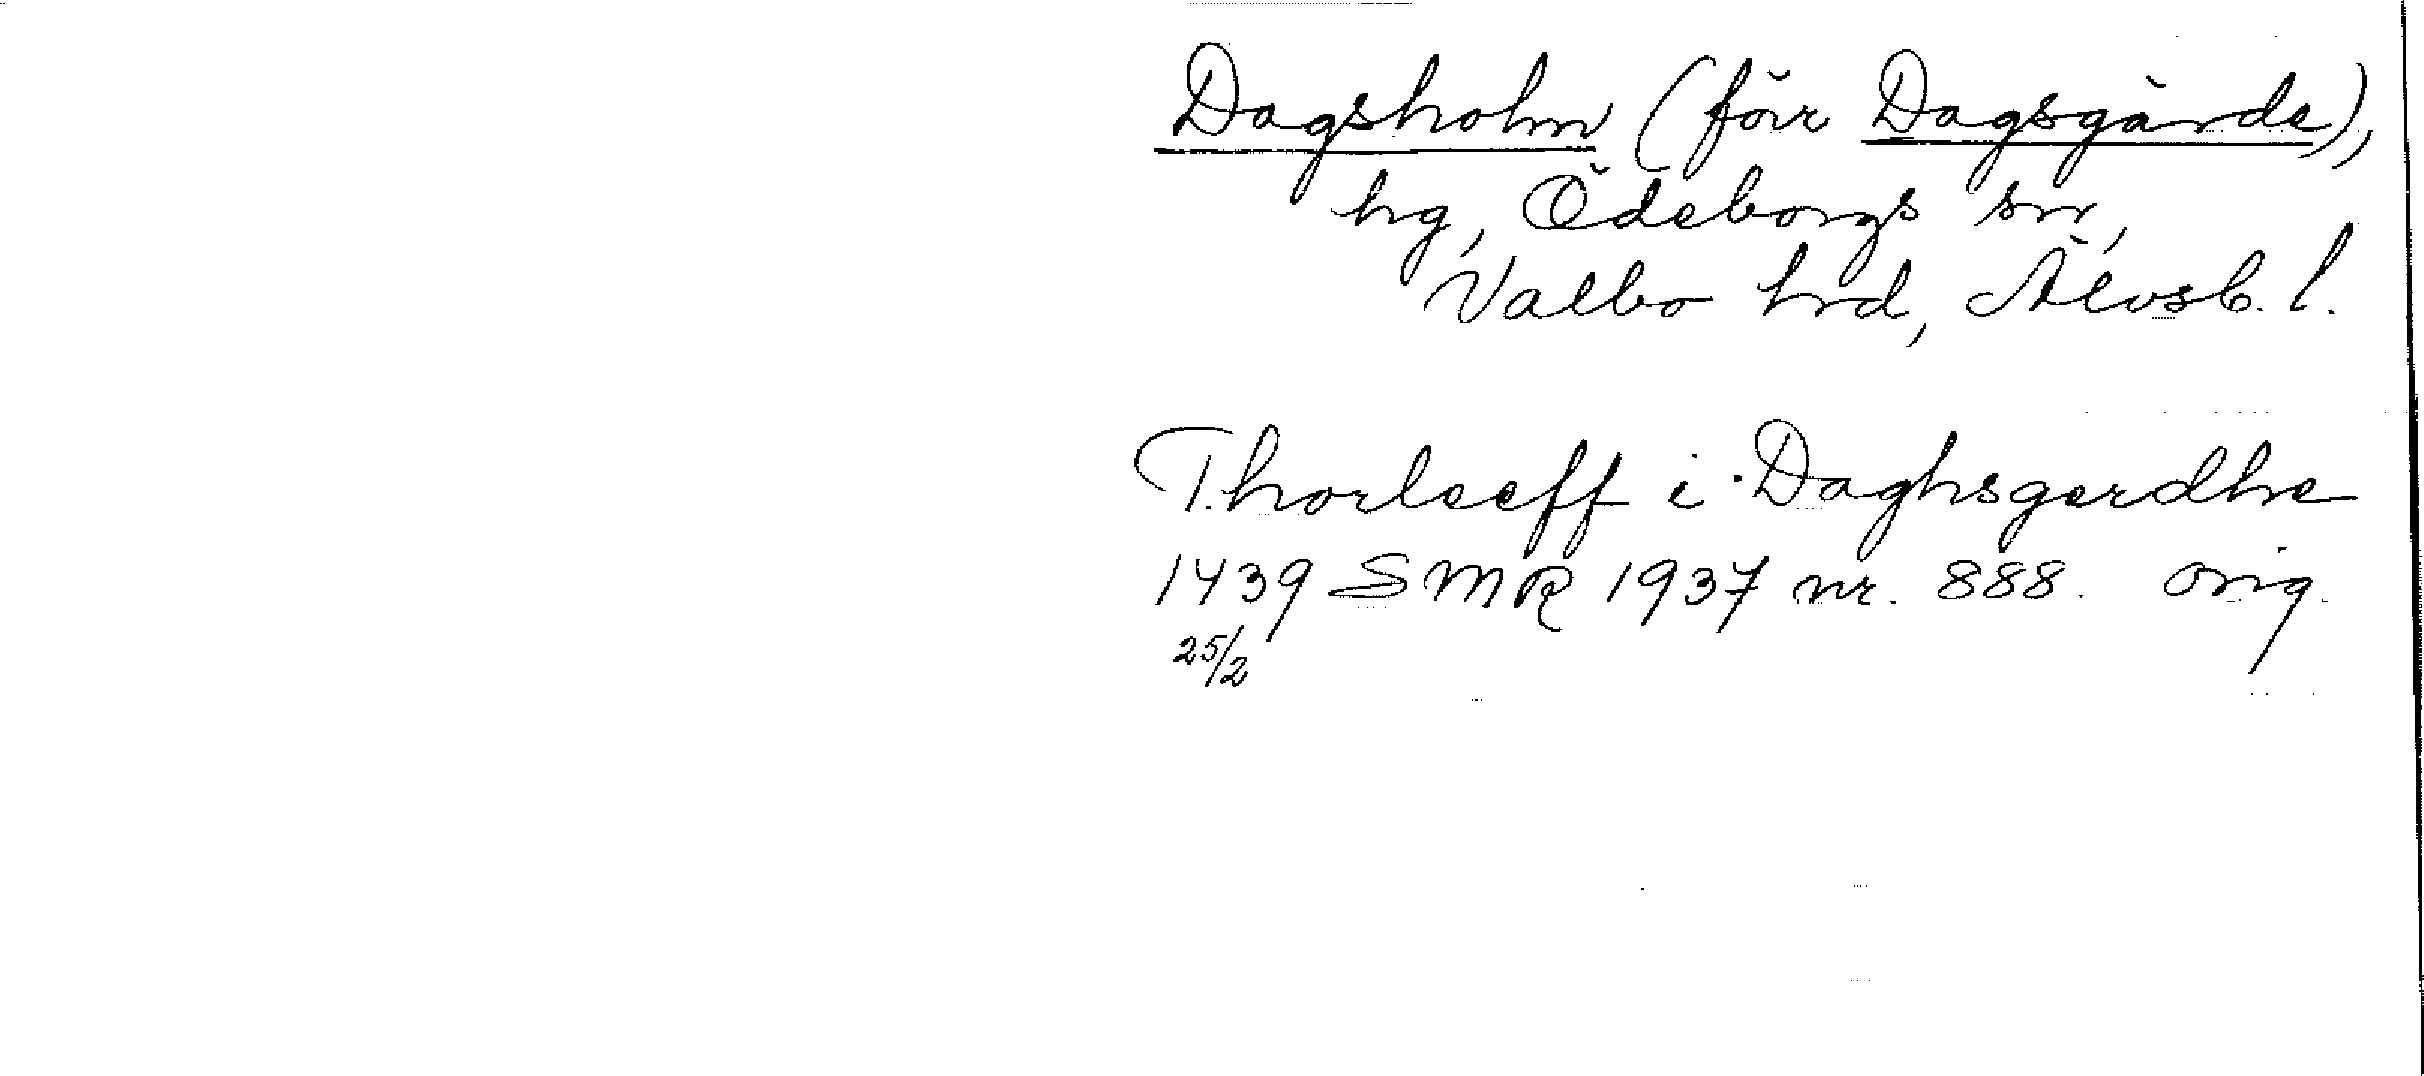 Dagsholm (förr Dagsgärde),
hg, Ödeborgs sn,
Valbo hrd, Älvsb. l.
Thorleeff i Daghsgerdhe
1439 SMR 1937 nr. 888. orig.
25/2